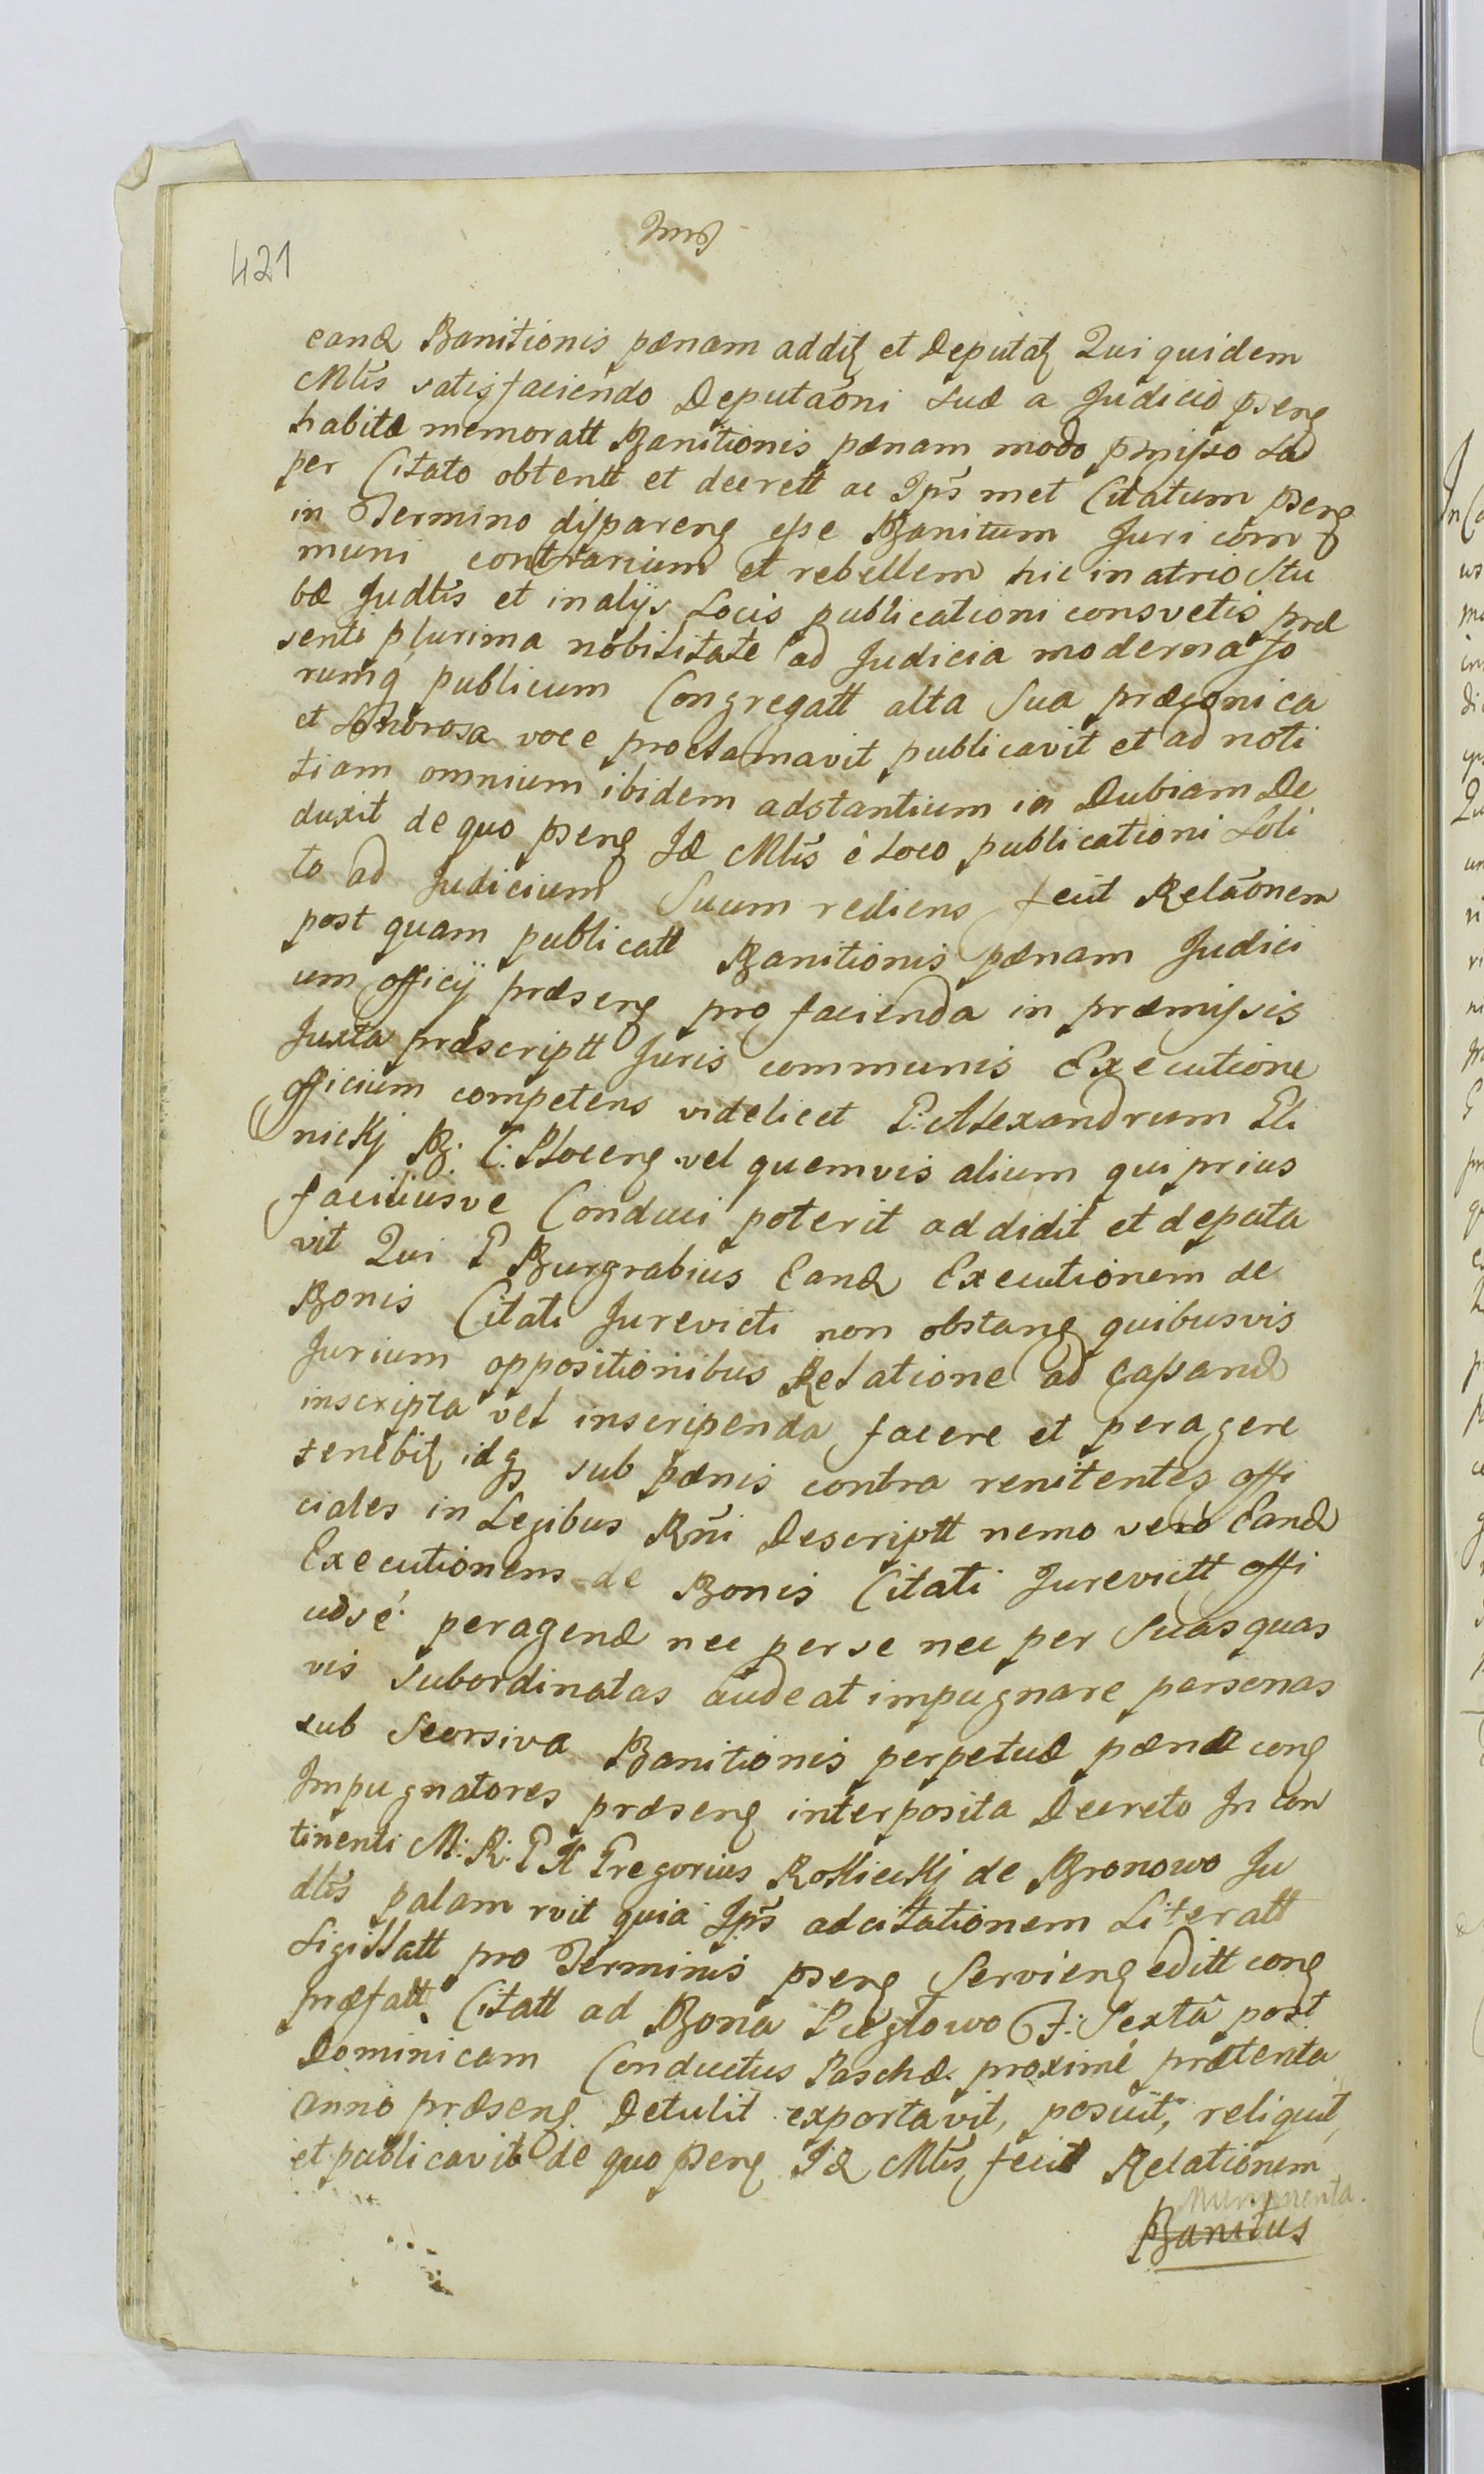 421
eand Banitionis pænam addit et Deputat Qui quidem
Mltis satisfaciendo Deputaōni suæ a Judicio psens
habitæ memoratt Banitionis pænam modo pmisso sæ
per Citato obtentt et decrett ac Ips̄ met Citatum psens
in Termino dispareng esse Banitum Juri com̄
muni contrarium et rebellem hic in atrio Stu
bæ Judtis et in alijs Locis publicationi consvetis præ
sente plurima nobilitate ad Judicia moderna fo
rumq publicum Congregatt alta Sua præconica
et Sonorosa voce proclamavit publicavit et ad noti
tiam omnium ibidem adstantium in Dubiam De
duxit de quo pseng Id Mltis è Loco publicationi Soli
to ad Judicium Suum rediens fecit Relaōnem
post quam publicatt Banitionis pænam Judici
um officij præseng pro facienda in præmissis
Juxta præscriptt Juris communis Executione
officium competens videlicet P: Alexandrum Eli
nickj B: C: Ploceng vel quemvis alium qui prius
faciliusve Conduci poterit addidit et deputa
vit Qui P Burgrabius Eand Executionem de
Bonis Citati Jurevicti non obstang quibusvis
Jurium oppositionibus Relatione ad cassand
inscripta vel inscripenda facere et peragere
tenebit idq sub pænis contra renitentes offi
ciales in Legibus Rn̄i Descriptt nemo vero Eand
Executionem de Bonis Citati Jurevictt offi
uosé peragend nec per se nec per Suas quas
vis subordinatas audeat impugnare personas
sub Seorsiva Banitionis perpetuæ pæna cong
Impugnatores præseng interposita Decreto In con
tinenti M: R: P K Gregorius Rokickj de Bronowo Ju
dtis palam rvit quia Ips̄ ad citationem Literatt
Sigillatt pro Terminis pseng Servieng editt cong
præfatt Citatt ad Bona Pięglowo F: Sexta post
Dominicam Conductus Paschæ proximé prætenta
anno præseng Detulit exportavit, posuit, reliquit,
et publicavit de quo pseng Id Mltis fecit Relationem
Munimenta.
Banitus